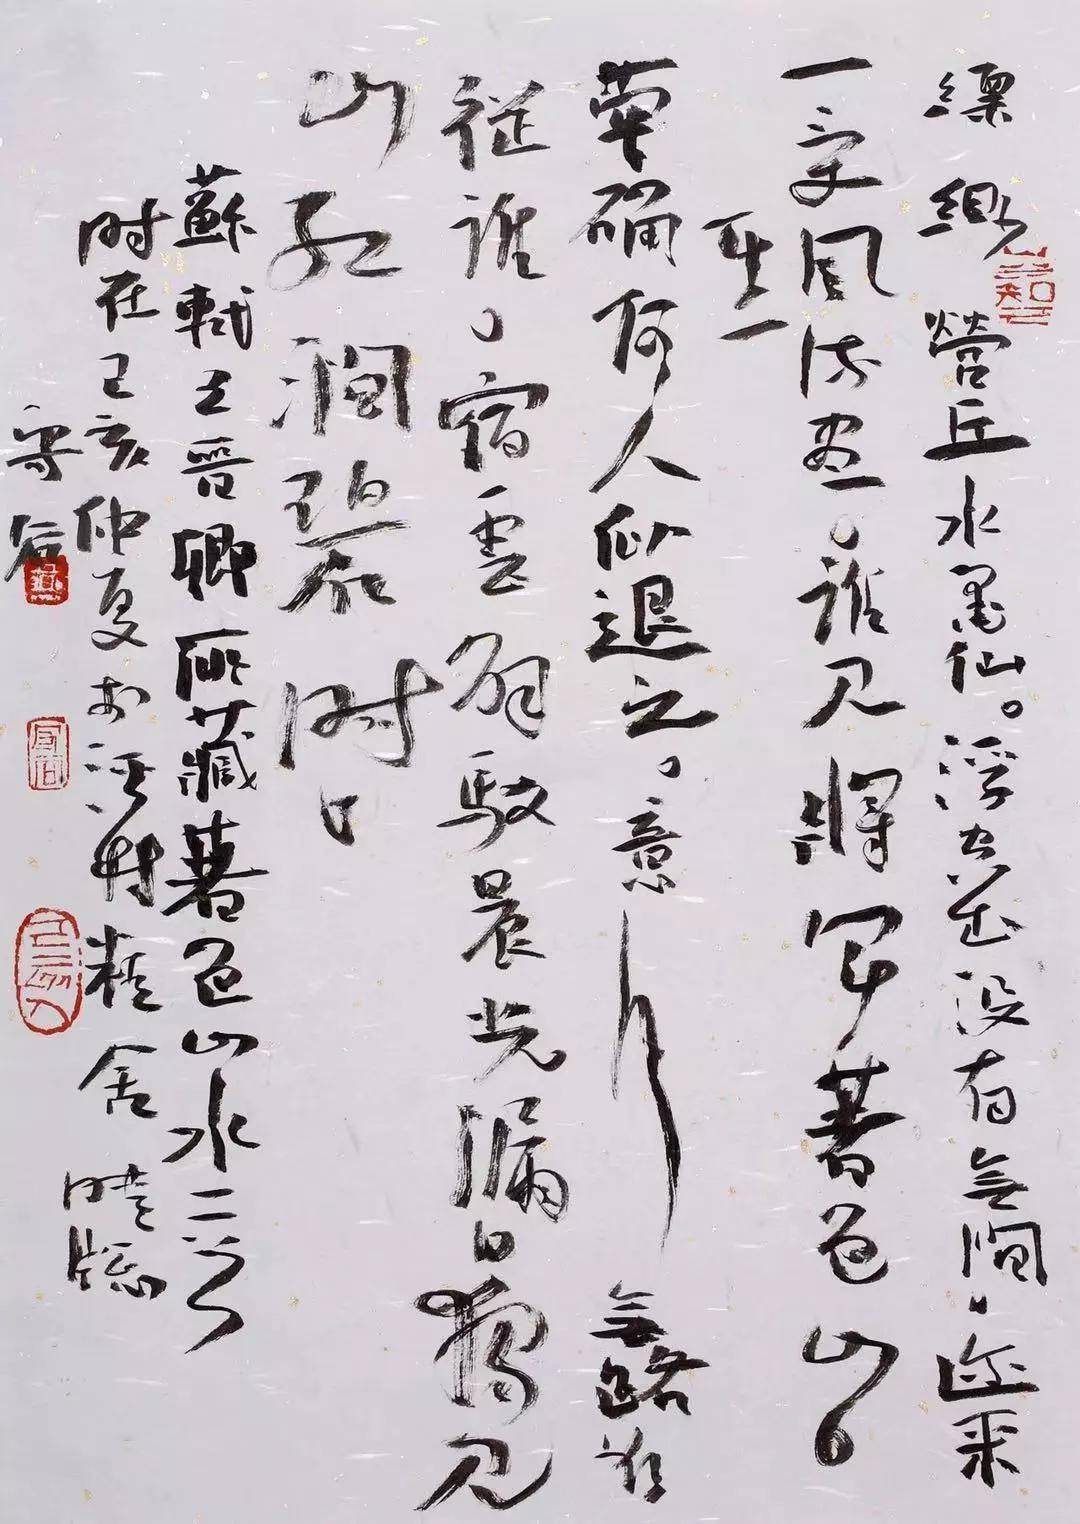 縹緲營丘水墨仙。浮空出没有無間。迩来
一变風流盡。誰見將軍著色山
其一
犖確何人似退之。意行無路欲
從誰。宿雲解駁晨光漏獨見
山紅澗碧時
蘇軾王晉卿所藏著色山水二首
時在己亥仲夏於村精舍晴窓